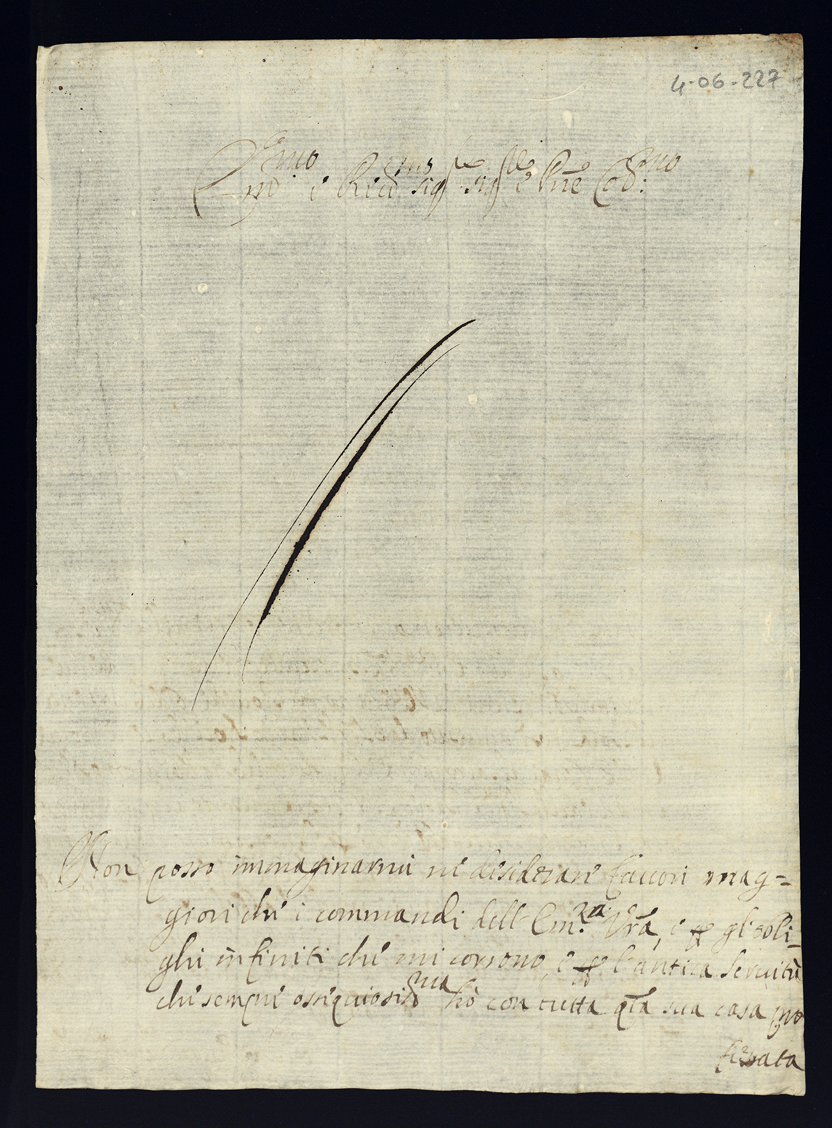 4-06-227
Em.mo e Re.mo Sig.r Sig.r e Pne Col.mo
Non posso immaginarmi ne desiderare favori mag=
giori che i commandi dell Em.za Vra, e p gl'obli-
ghi infiniti che mi corrono, e p l'antica servitù
che sempre ossequiosis.ma hò con tutta qta sua casa pro
fesata